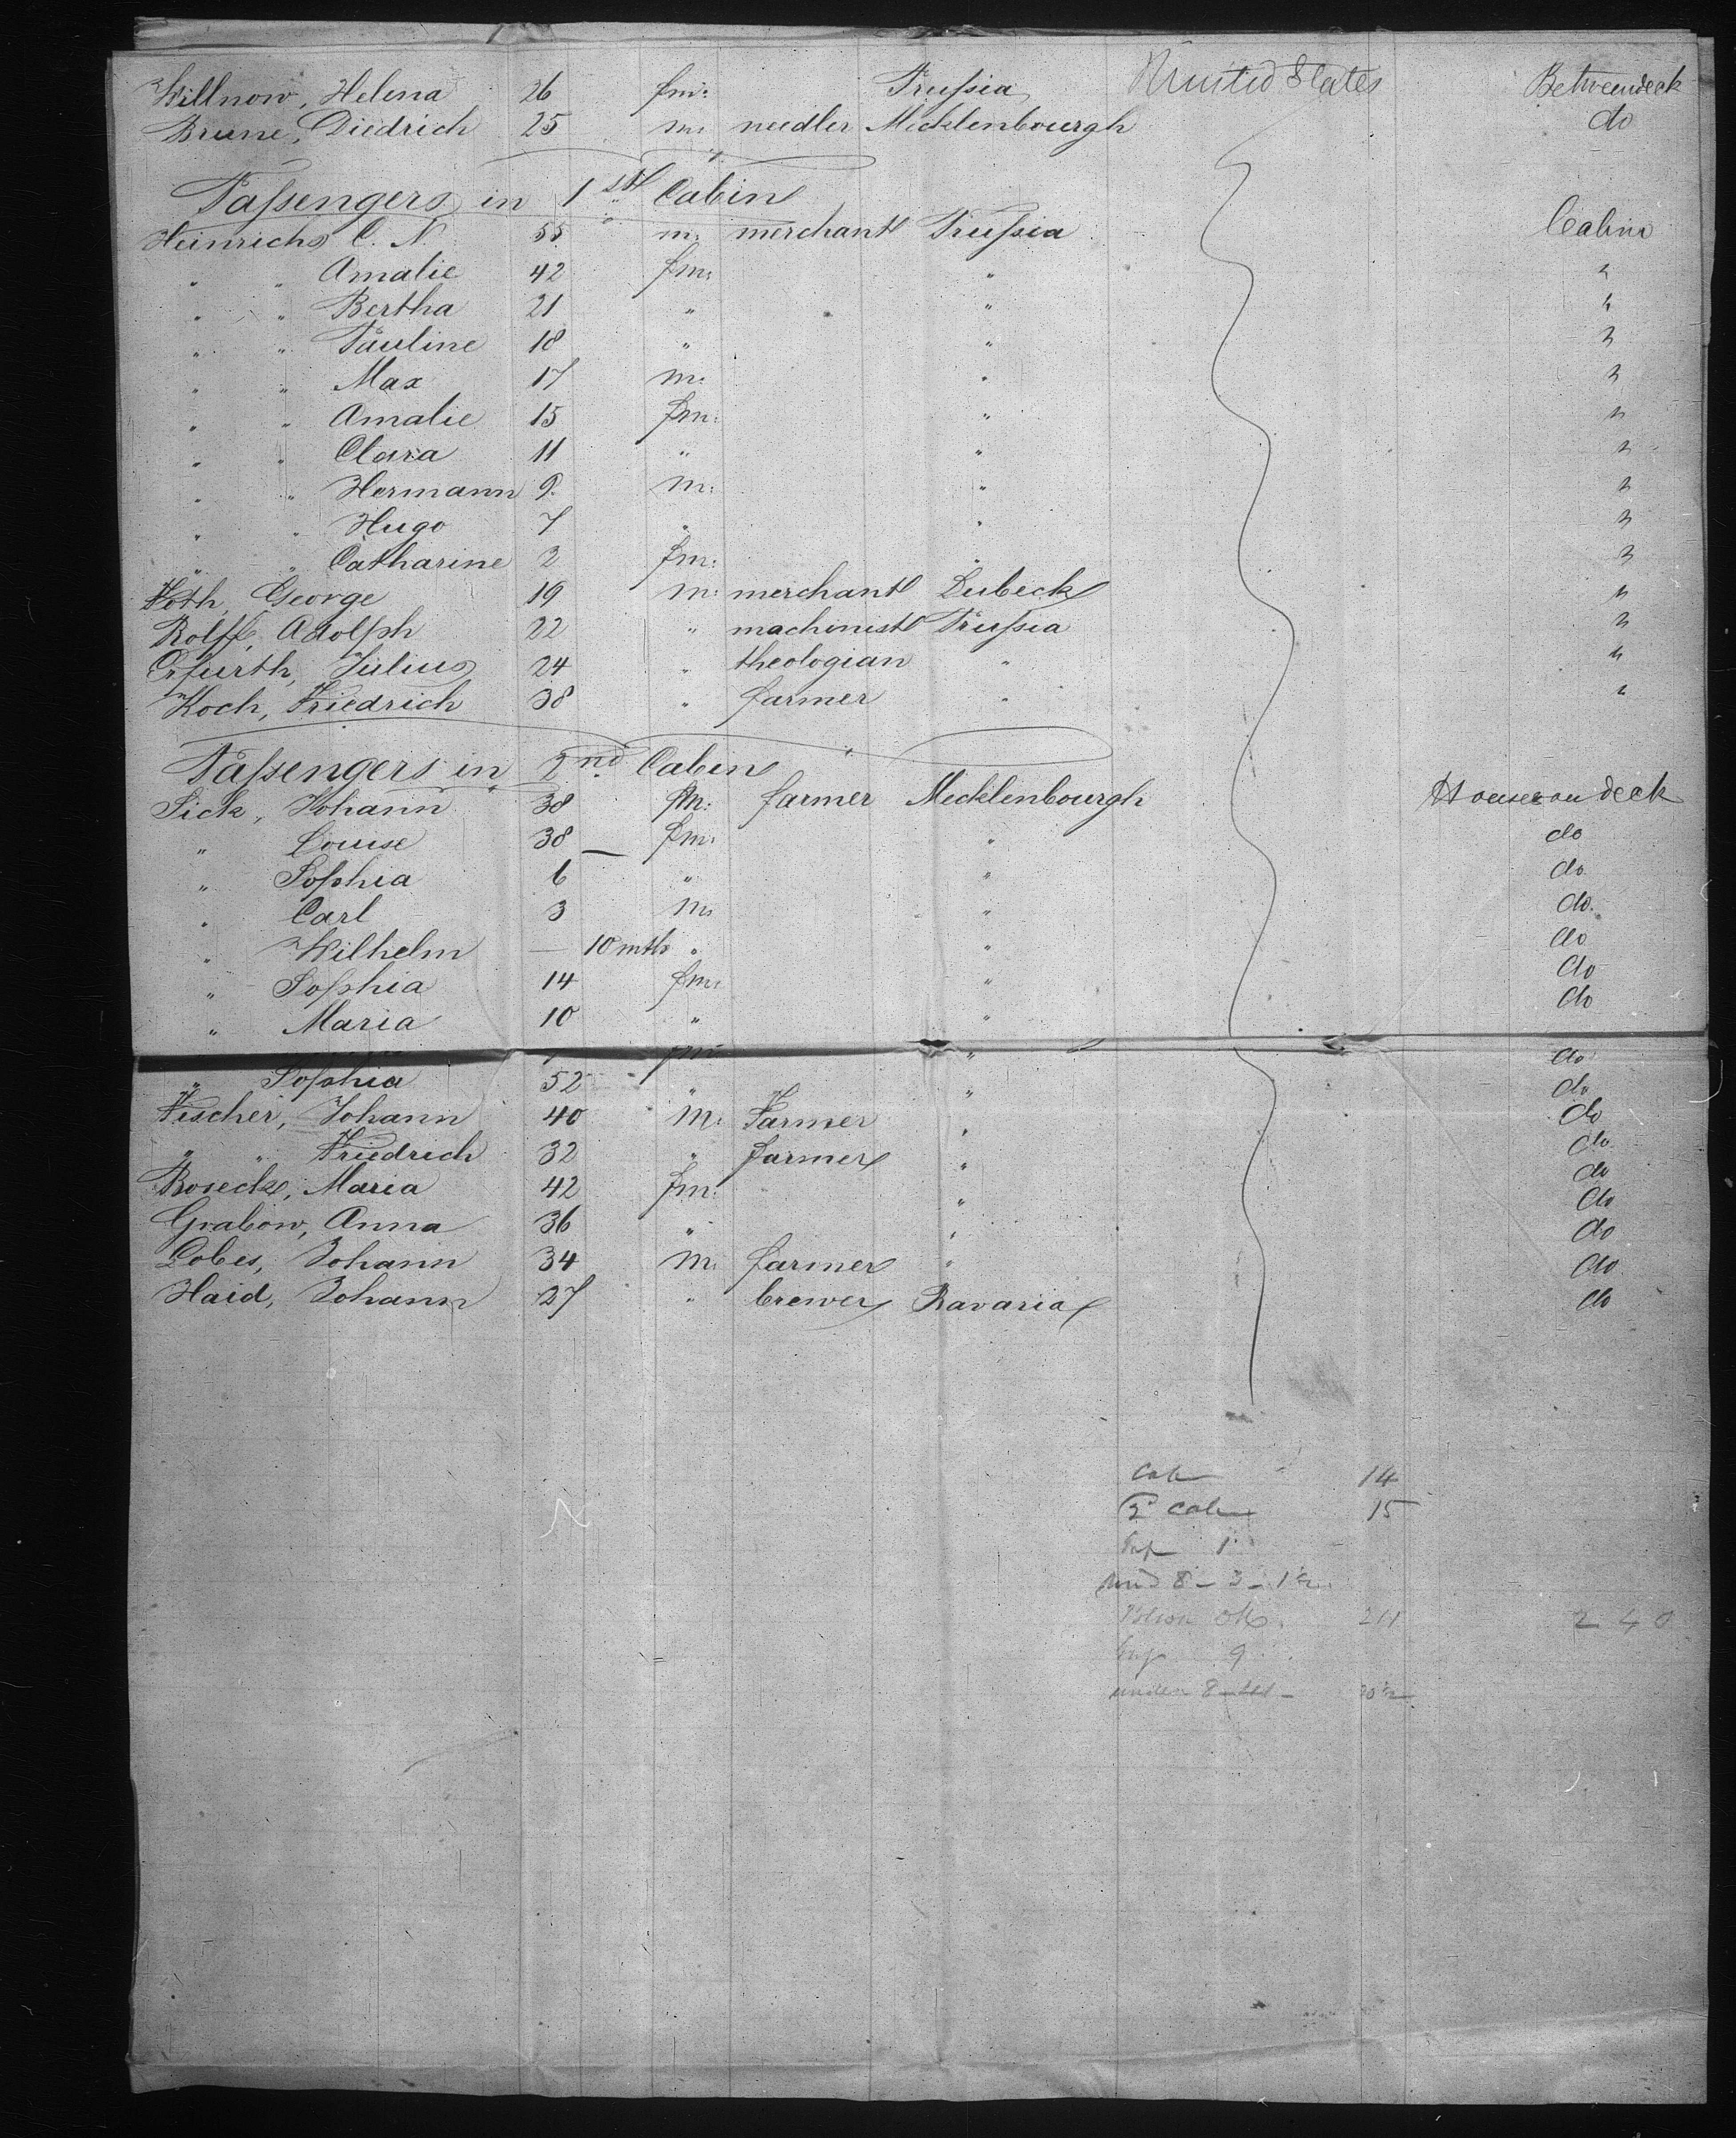 Willnow, Helena 26 fm: Prussia United States Betweendeck
Brune, Diedrich 25 m: needler Mecklenbourgh do
Passengers in 1st Cabin
Heinrichs C. N. 55 m: merchant Prussia Cabin
" " Amalie 42 fm: " "
" " Bertha 21 " " "
" " Pauline 18 " " "
" " Max 17 m: " "
" " Amalie 15 fm: " "
" " Clara 11 " " "
" " Hermann 9. m: " "
" " Hugo 7 " " "
" " Catharine 2 fm: " "
Voth, George 19 m: merchant Lubeck "
Rolffs, Adolph 22 " machinist Prussia "
Erfurth, Julius 24 " theologian " "
Koch, Friedrich 38 " farmer " "
Passengers in 2nd Cabin
Sick, Johann 38 m: farmer Mecklenbourgh House on deck
" Louise 38 fm: " do
" Sophia 6 " " do
" Carl 3 m: " do.
" Wilhelm — 10 mth " " do
" Sophia 14 fm: " do
" Maria 10 " " do
fm: " do
" Sophia 52 " " do
Fischer, Johann 40 m: Farmer " do
" " Friedrich 32 " farmer " do
Boseck, Maria 42 fm: " do
Grabow, Anna 36 " " do
Lobes, Johann 34 m: farmer " do
Haid, Johann 27 " brewer Bavaria do
do
Cab 14
2d Cab 15
Inf 1
und 8 - 3 - 1 1/2
211 240
Inf 9
under 8 - 20 1/2